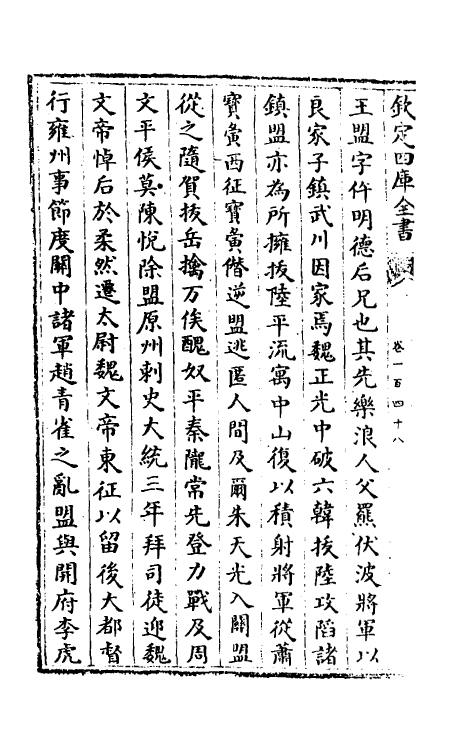 欽定四庫全書
卷一百四十八
王盟字仵明德后兄也其先樂浪人父羆伏波將軍以
良家子鎮武川因家焉魏正光中破六韓拔陸攻䧟諸
鎮盟亦為所擁拔陸平流寓中山復以積射將軍從蕭
寶夤西征寶夤僭逆盟逃匿人間及爾朱天光入關盟
從之隨賀拔岳擒万俟醜奴平秦隴常先登力戰及周
文平侯莫陳悅除盟原州刺史大統三年拜司徒迎魏
文帝悼后於柔然遷太尉魏文帝東征以留後大都督
行雍州事節度關中諸軍趙青雀之亂盟與開府李虎